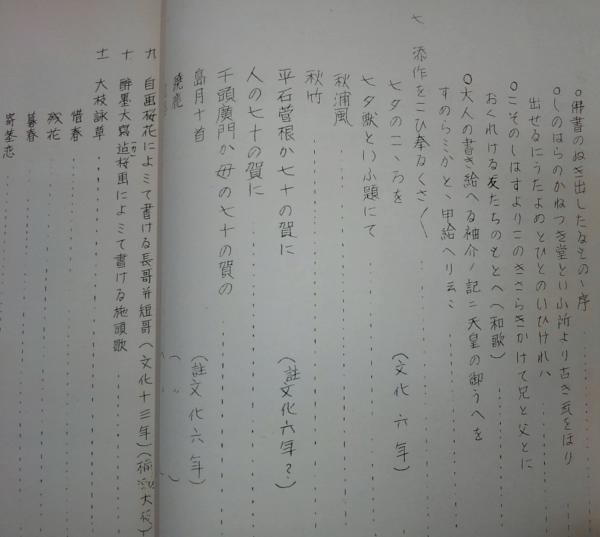 ○佛書のぬき出したるその序
○しのはらのかねつき堂といふ所より古き瓦をほり
出せるにうたよめとひとのいひけれハ
○こそのしはすよりこのきさらきかけて兄と父とに
おくれける友たちのもとへ(和歌)
○大人の書き給へる袖介ノ記ニ天皇の御うへを
すめらミかと、申給へり云ミ
七 添作をこひ奉るくさ〲
七夕のこゝろを (文化六年)
七夕獣といふ題にて
秋浦風
秋竹
平石菅根か七十の賀に (註文化六年?)
人の七十の賀に
千頭廣門か母の七十の賀の
島月十首 (註文化六年)
九 自画桜花によミて書ける長哥并短哥(文化十三年)(稲掛大
十 酔墨大寫 桜画によミて書ける施頭歌
十一 大枝詠草
惜春
残花
暮春
寄葦恋